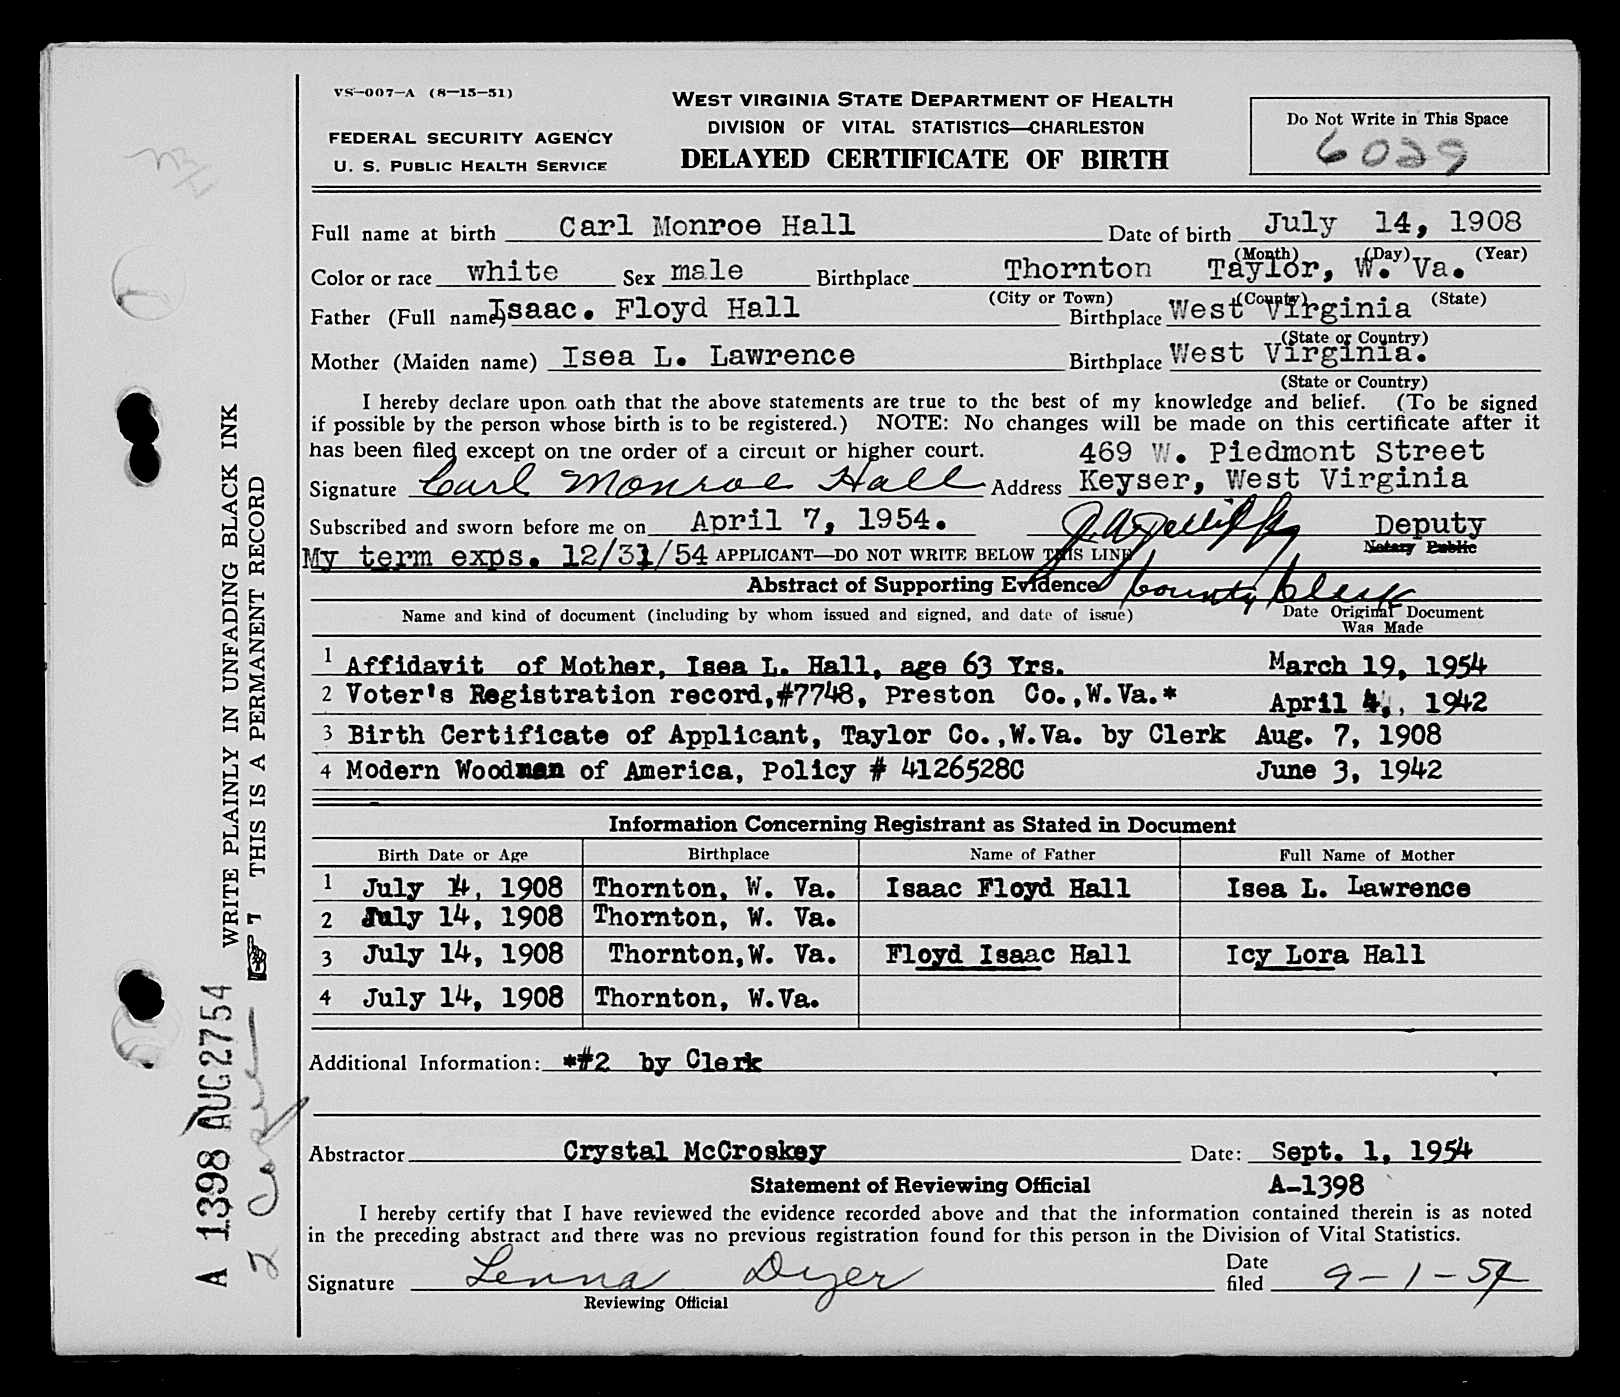 VS-007-A (8-15-51)
FEDERAL SECURITY AGENCY
U. S. PUBLIC HEALTH SERVICE
WEST VIRGINIA STATE DEPARTMENT OF HEALTH
DIVISION OF VITAL STATISTICS—CHARLESTON
DELAYED CERTIFICATE OF BIRTH
Do Not Write in This Space
6029
Full name at birth Carl Monroe Hall Date of birth July 14, 1908
(Month) (Day) (Year)
Color or race white Sex male Birthplace Thornton Taylor, W. Va.
(City or Town) (County) (State)
Father (Full name) Isaac. Floyd Hall Birthplace West Virginia
(State or Country)
Mother (Maiden name) Isea L. Lawrence Birthplace West Virginia.
(State or Country)
I hereby declare upon oath that the above statements are true to the best of my knowledge and belief. (To be signed
if possible by the person whose birth is to be registered.) NOTE: No changes will be made on this certificate after it
has been filed except on the order of a circuit or higher court. 469 W. Piedmont Street
Signature Carl Monroe Hall Address Keyser, West Virginia
Subscribed and sworn before me on April 7, 1954. Deputy
Notary Public
My term exps. 12/31/54 APPLICANT—DO NOT WRITE BELOW THIS LINE
Abstract of Supporting Evidence County Clerk
Name and kind of document (including by whom issued and signed, and date of issue) Date Original Document
Was Made
1 Affidavit of Mother, Isea L. Hall, age 63 Yrs. March 19, 1954
2 Voter's Registration record,#7748, Preston Co.,W.Va.* April 4, 1942
3 Birth Certificate of Applicant, Taylor Co.,W.Va. by Clerk Aug. 7, 1908
4 Modern Woodmen of America, Policy # 4126528C June 3, 1942
Information Concerning Registrant as Stated in Document
Birth Date or Age Birthplace Name of Father Full Name of Mother
1 July 14, 1908 Thornton, W. Va. Isaac Floyd Hall Isea L. Lawrence
2 July 14, 1908 Thornton, W. Va.
3 July 14, 1908 Thornton,W. Va. Floyd Isaac Hall Icy Lora Hall
4 July 14, 1908 Thornton, W.Va.
Additional Information: *#2 by Clerk
Abstractor Crystal McCroskey Date: Sept. 1, 1954
Statement of Reviewing Official A-1398
I hereby certify that I have reviewed the evidence recorded above and that the information contained therein is as noted
in the preceding abstract and there was no previous registration found for this person in the Division of Vital Statistics.
Signature Lenna Dyer Date
filed 9-1-54
Reviewing Official
WRITE PLAINLY IN UNFADING BLACK INK
THIS IS A PERMANENT RECORD
A 1398 AUG 27 54